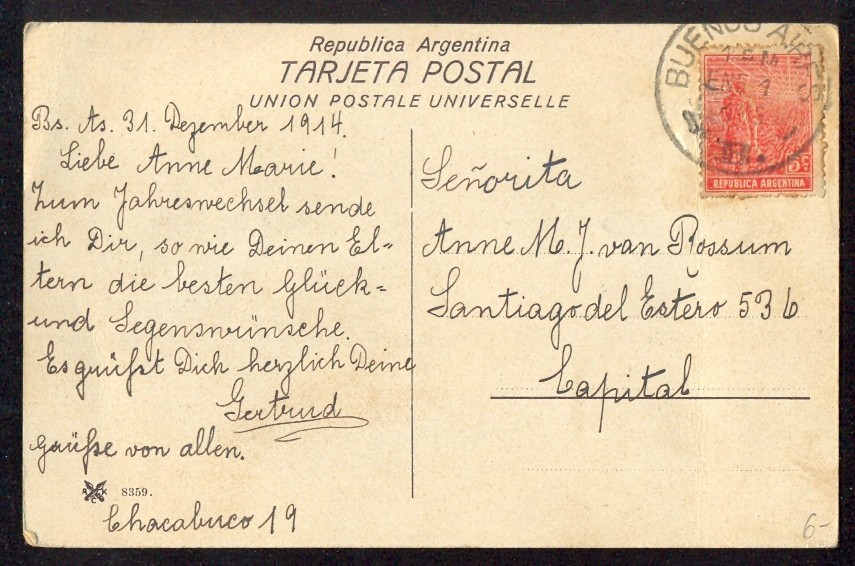 Republica Argentina
TARJETA POSTAL
UNION POSTALE UNIVERSELLE
Bs. As. 31. Dezember 1914.
Liebe Anne Marie!
Zum Jahreswechsel sende
ich Dir, so wie Deinen El=
tern die besten Glück=
und Segenswünsche.
Es grüßt Dich herzlich Deine
Gertrud
Grüße von allen.
8359.
Chacabuco 19
BUENOS AIRES
ENE 1
5c
REPUBLICA ARGENTINA
Señorita
Anne M. J. van Rossum
Santiago del Estero 536
Capital
6-